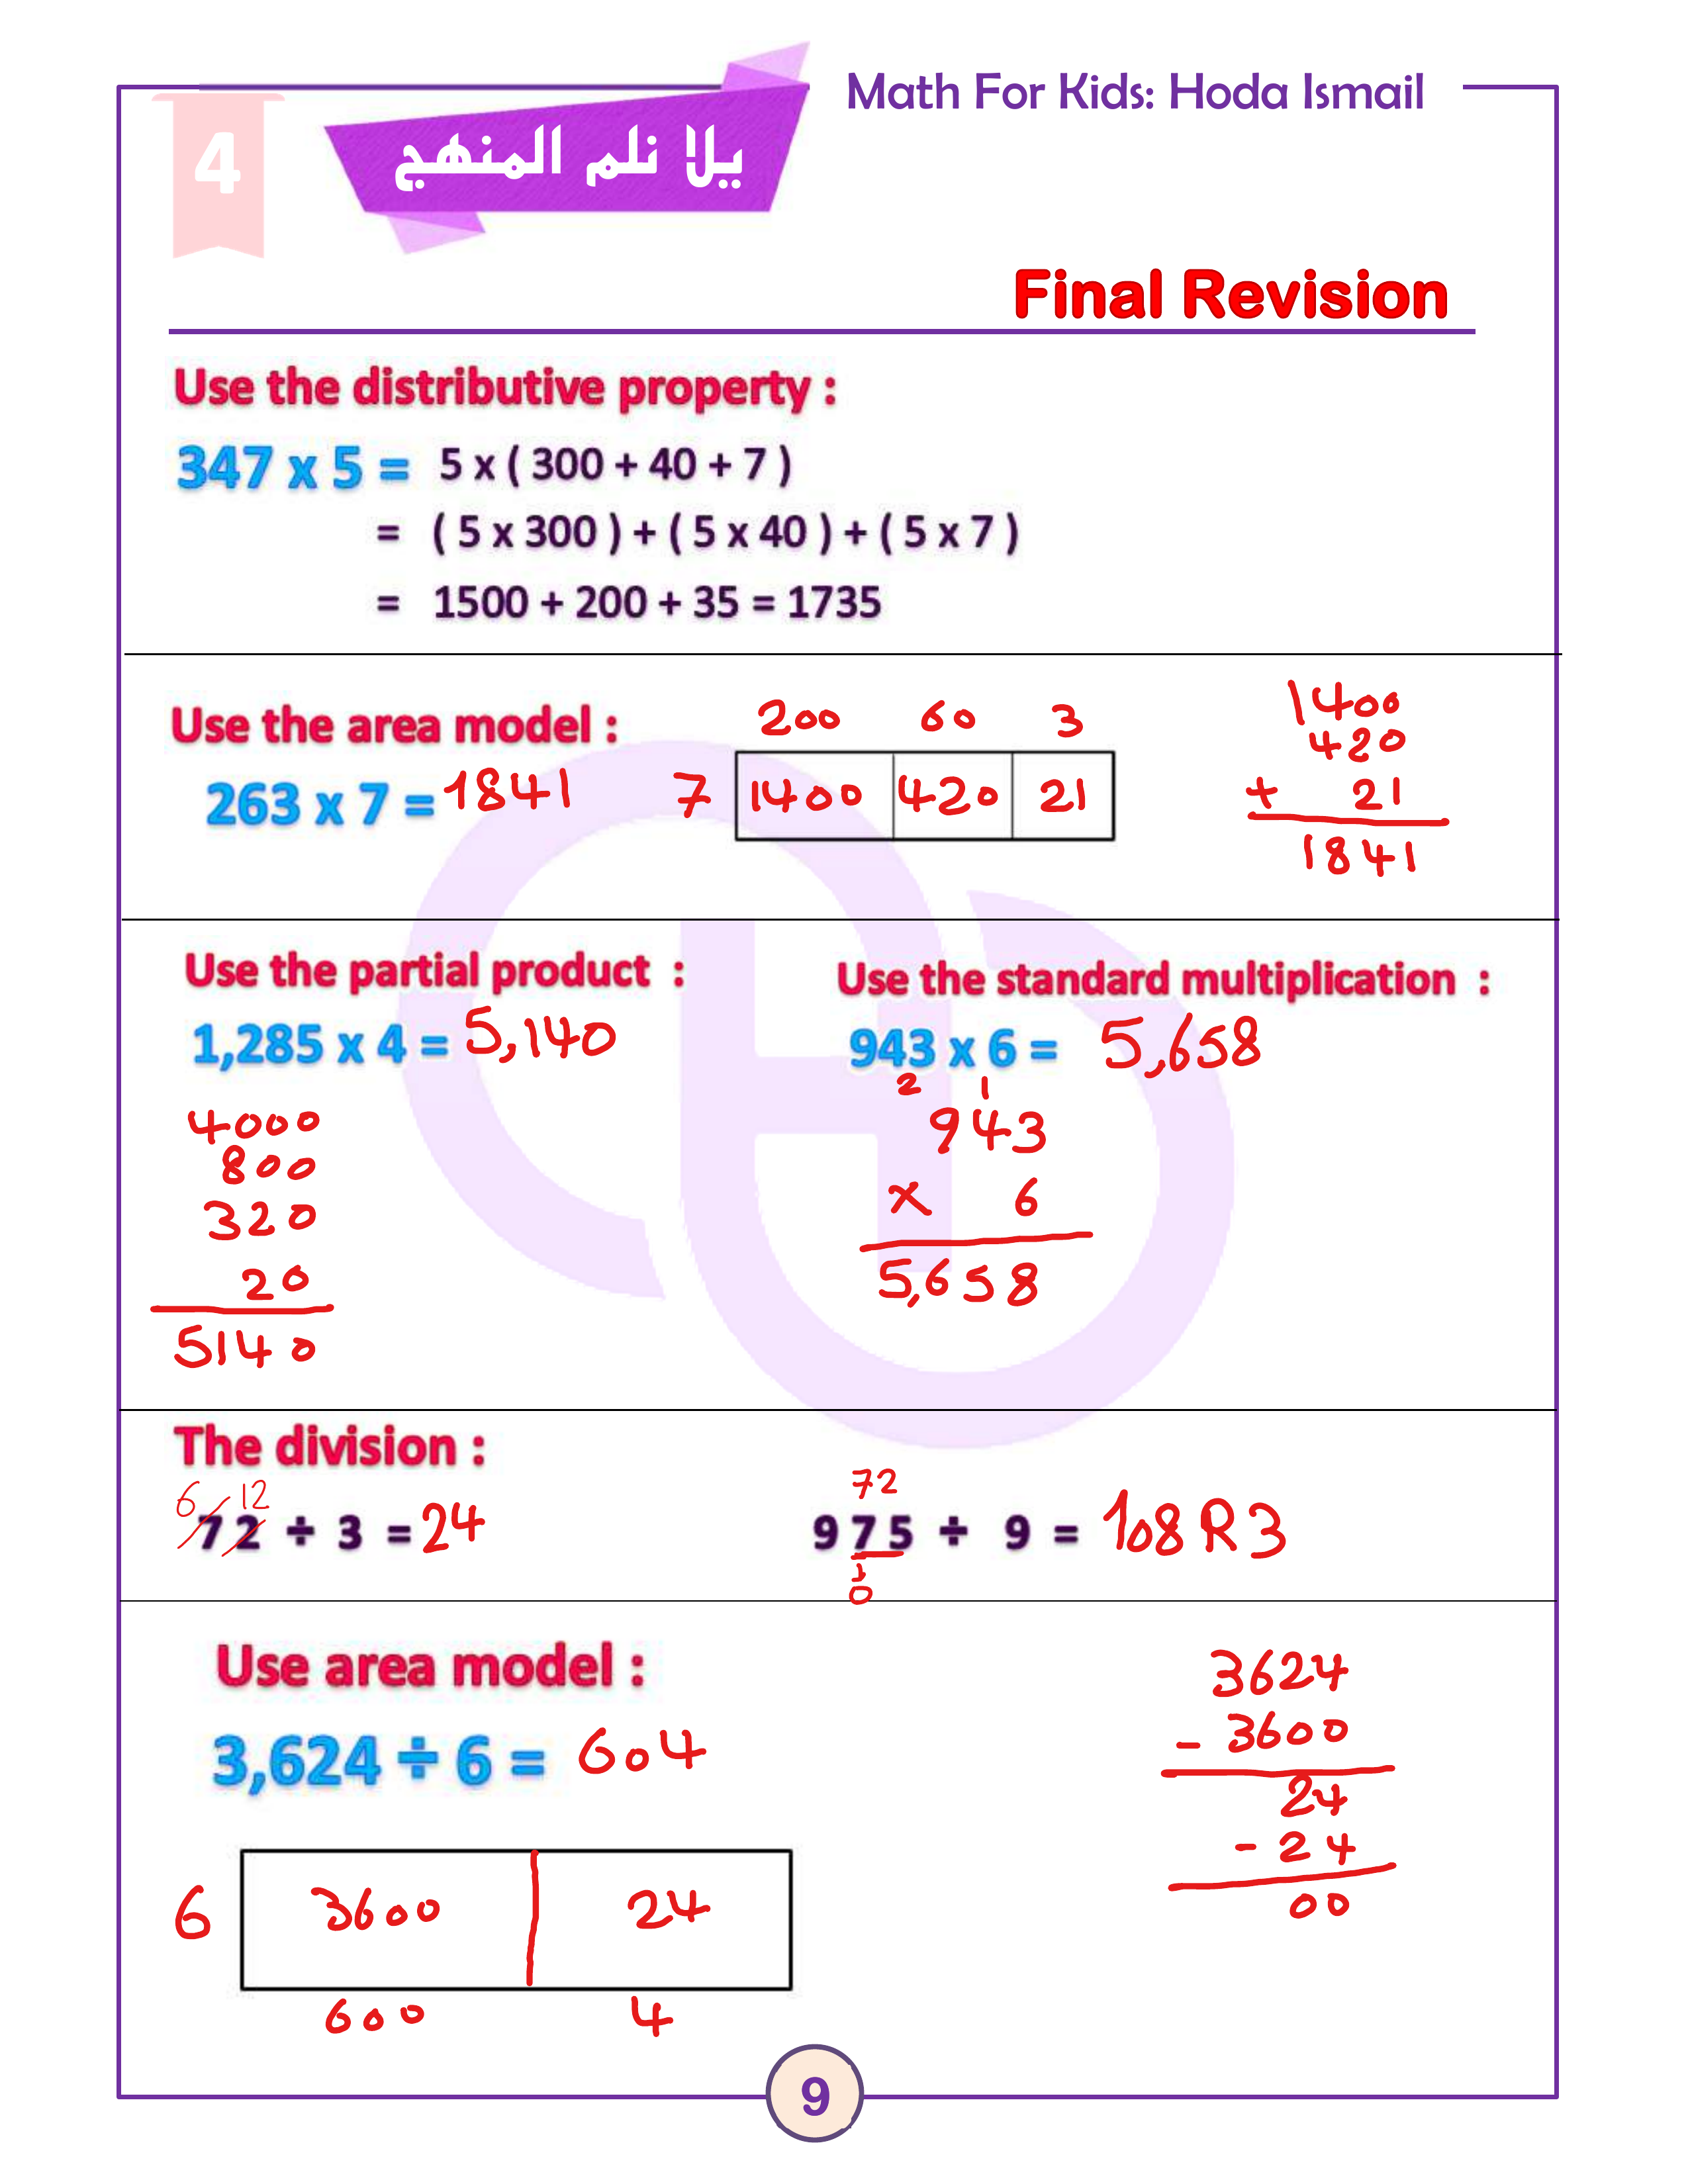 Math For Kids: Hoda Ismail
4
يلا نلم المنهج
Final Revision
Use the distributive property :
347 x 5 = 5 x ( 300 + 40 + 7 )
= ( 5 x 300 ) + ( 5 x 40 ) + ( 5 x 7 )
= 1500 + 200 + 35 = 1735
Use the area model :
263 x 7 = 1841
200 60 3
7 1400 420 21
1400
420
+ 21
1841
Use the partial product :
1,285 x 4 = 5,140
4000
800
320
20
5140
Use the standard multiplication :
943 x 6 = 5,658
2 1
943
x 6
5,658
The division :
6 12
72 ÷ 3 = 24
72
975 ÷ 9 = 108 R 3
1
0
Use area model :
3,624 ÷ 6 = 604
6 3600 24
600 4
3624
- 3600
24
- 24
00
9